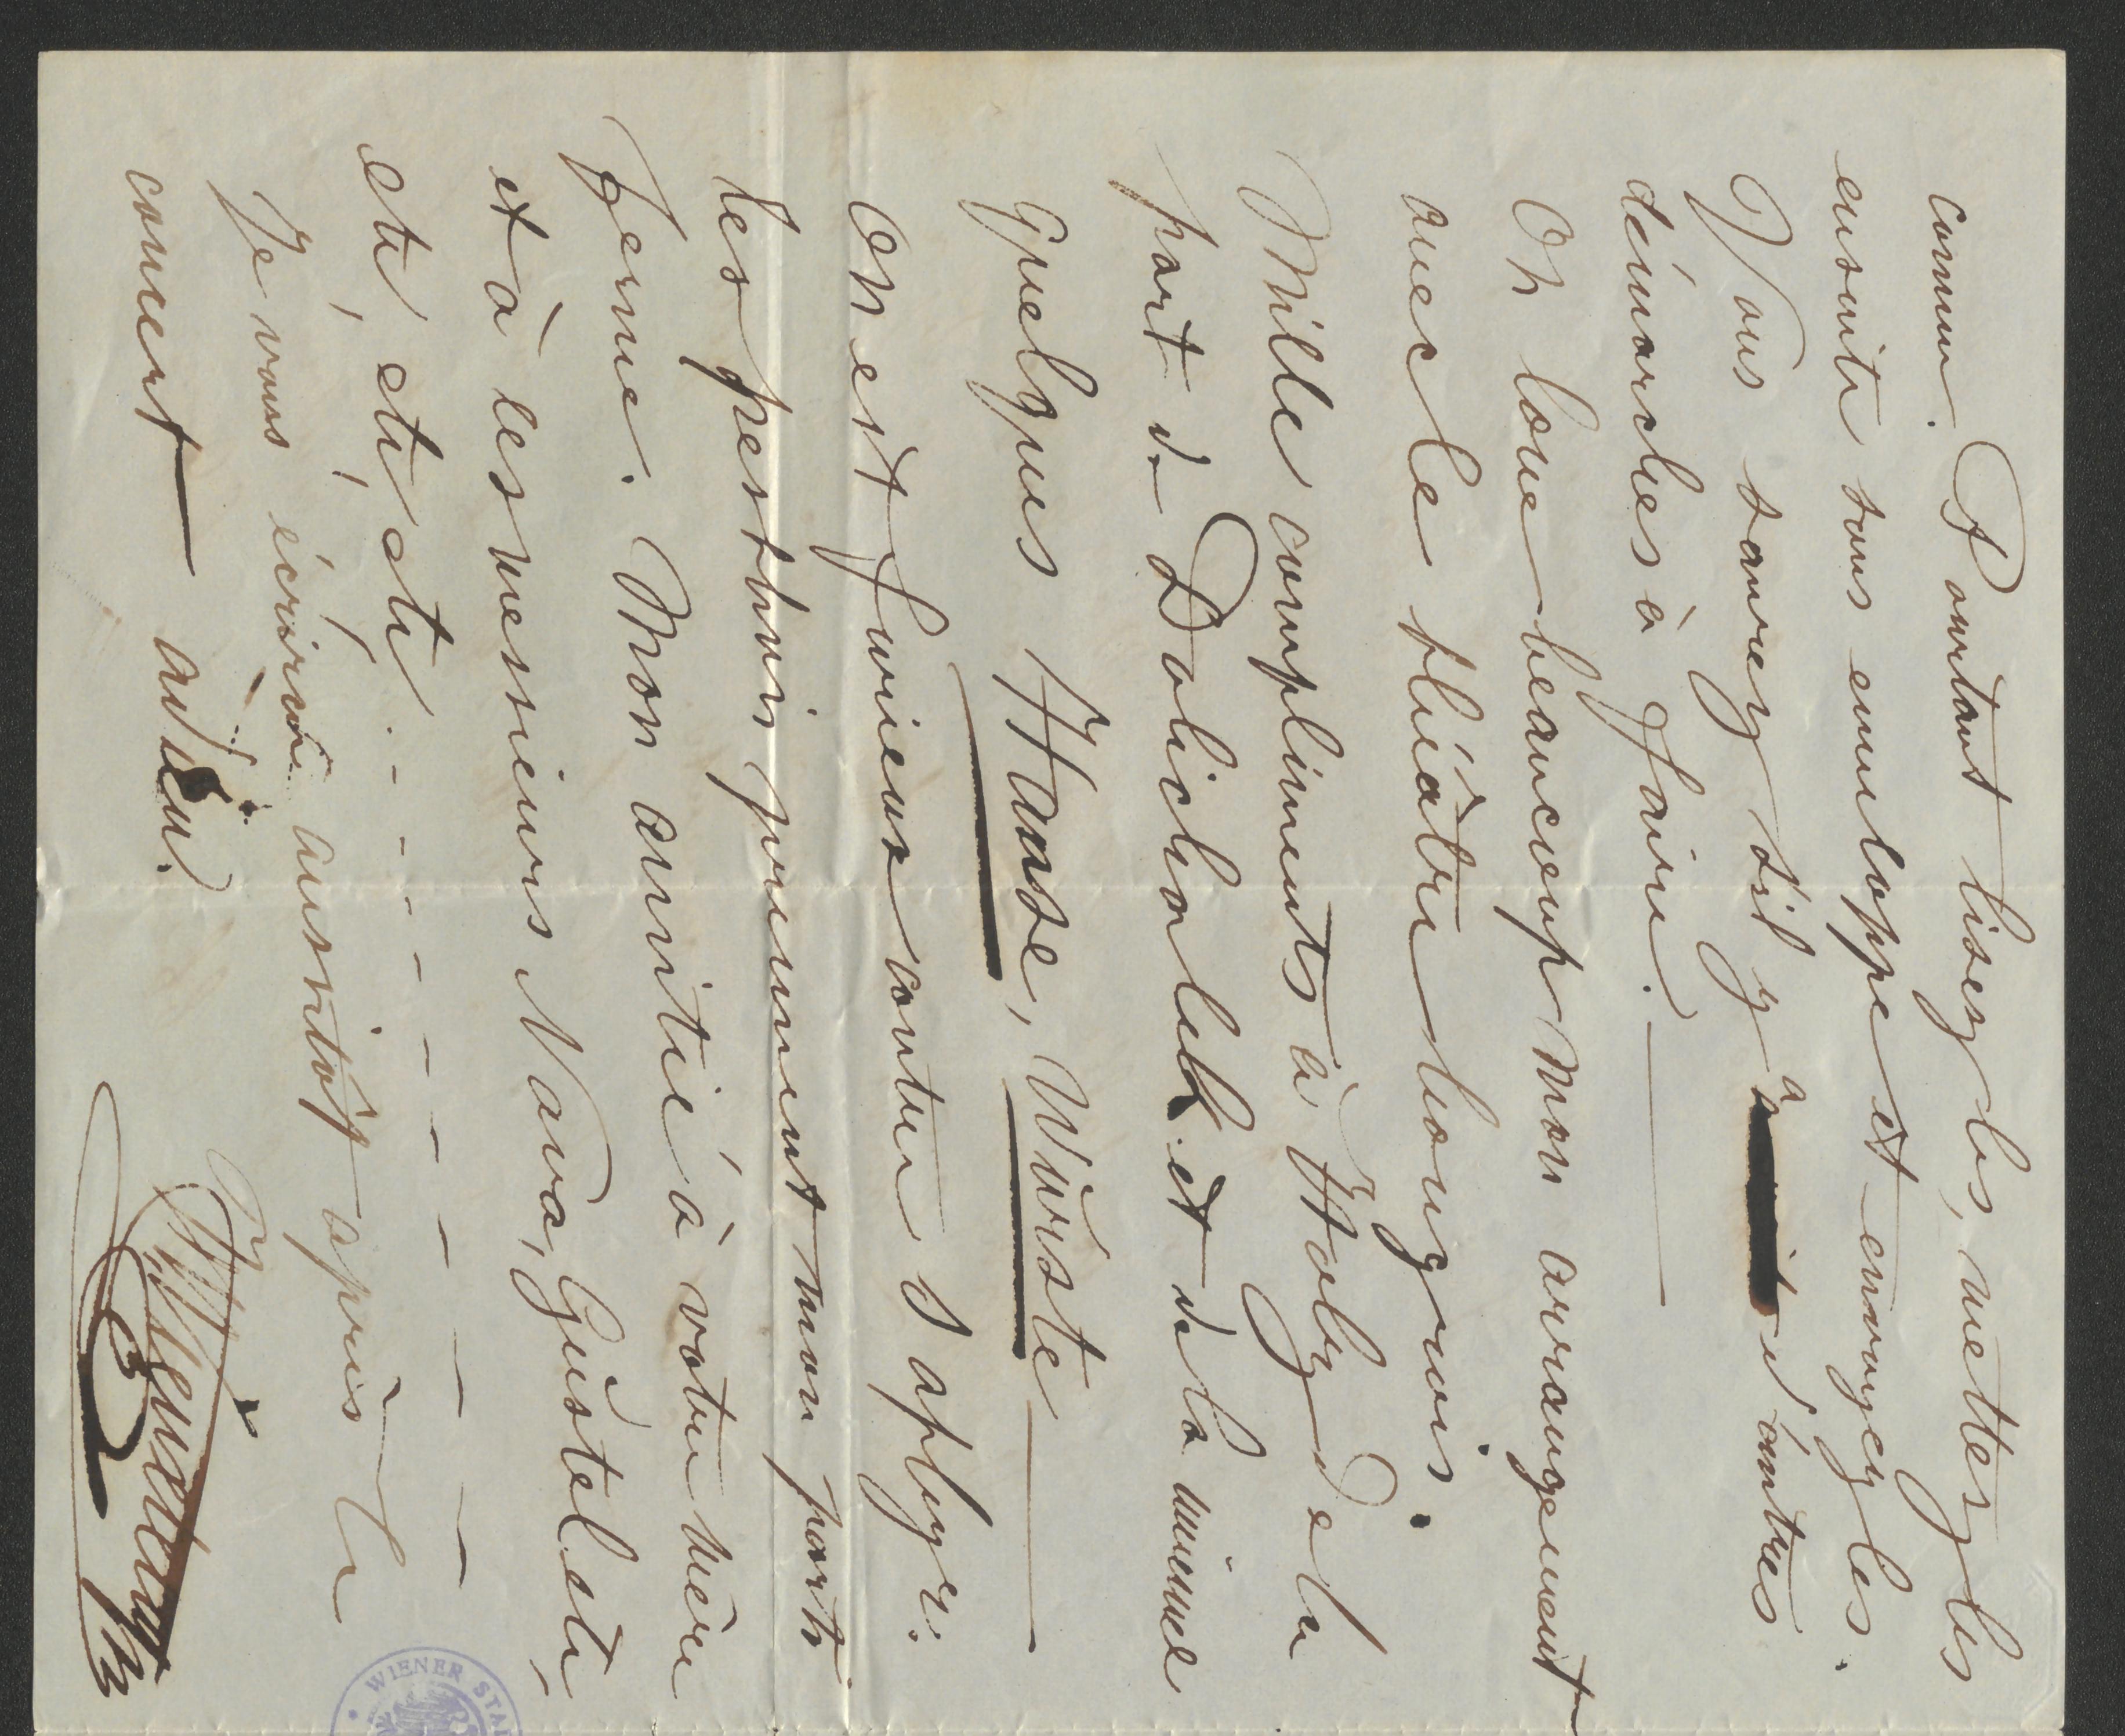 connu. Pourtant lisez les, mettez les
ensuite sous enveloppe et envoyez les.
Vous savez s'il y a d'autres
démarches à faire. —
On loue beaucoup mon arrangement
avec le théâtre hongrois.
Mille compliments à Holy de la
part de Doliehalek et de la mienne
Quelques Haase, Würste —
On est furieux contre Saphyr.
les pesthois prennent mon parti
ferme. Mon amitié à votre mère
et à les messieurs Nava, Gustel etc,
etc, etc, etc. - - - - - - - - - -
Je vous écrirai aussitôt après le
concert — adieu.
WIENER STA